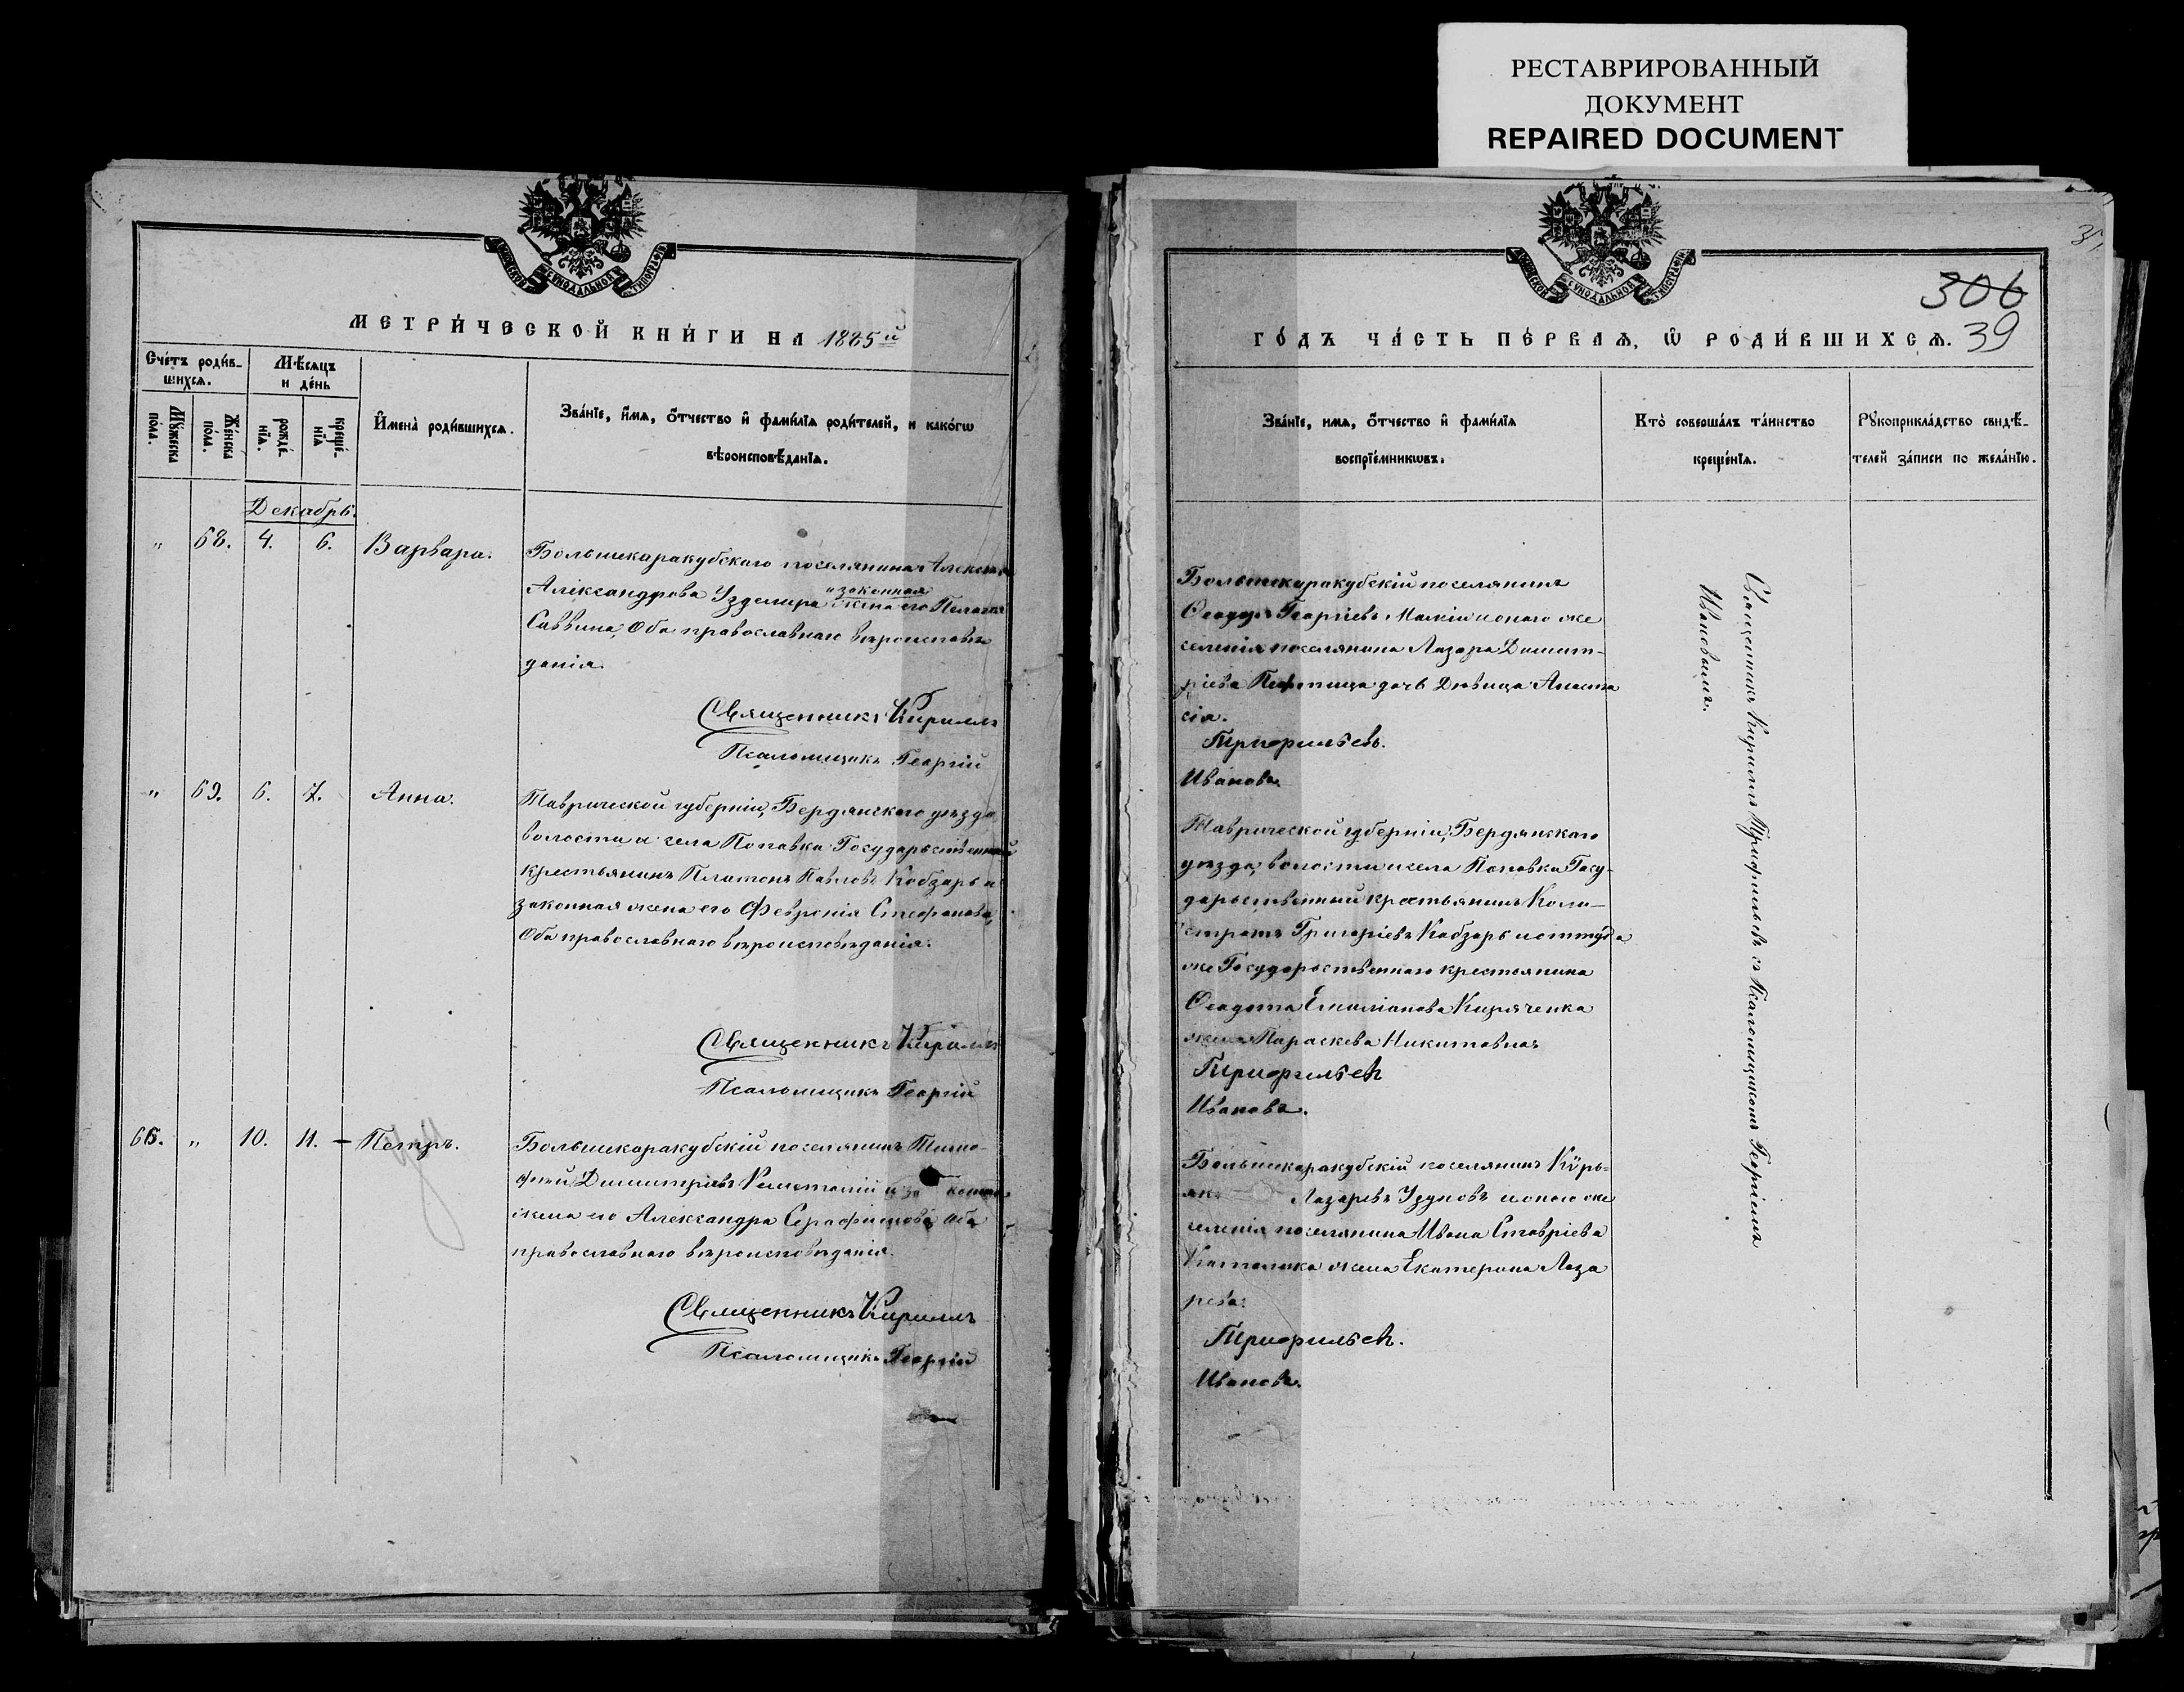 РЕСТАВРИРОВАННЫЙ
ДОКУМЕНТ
REPAIRED DOCUMENT
МЕТРИ́ЧЕСКОЙ КНИ́ГИ НА 1885 й
Сче́тъ роди́в-
шихся.
Мѣ́сяцъ
и де́нь
Мꙋ́жеска
по́ла.
Же́нска
по́ла.
рожде́-
нїѧ.
креще́-
нїѧ.
И҆мена̀ роди́вшихсѧ.
Зва́нїе, и҆́мѧ, ѻ҆́тчество и҆ фами́лїѧ роди́телей, и како́гѡ
вѣроисповѣ́данїѧ.
Декабрь.
„ 68. 4. 6. Варвара.
Большекаракубскаго поселянина Алексѣй
Александрова Узделира и законная жена его Пелагія
Саввина, Оба православнаго вѣроисповѣ
данія.
Священникъ Кириллъ
Псаломщикъ Георгій
„ 69. 6. 7. Анна.
Таврической губерніи, Бердянскаго уѣзда
волости и села Поповки Государственный
крестьянинъ Платонъ Павловъ Кобзарь и
законная жена его Февронія Стефанова,
Оба православнаго вѣроисповѣданія.
Священникъ Кириллъ
Псаломщикъ Георгій
66. „ 10. 11. Петръ.
Большекаракубскій поселянинъ Тимо-
фей Димитріевъ и законная
жена его Александра Серафимова Оба
православнаго вѣроисповѣданія.
Священникъ Кириллъ
Псаломщикъ Георгій
306
39
ГО́ДЪ ЧА́СТЬ ПЕ́РВАѦ, Ѡ҆ РОДИ́ВШИХСѦ.
Зва́нїе, имѧ, ѻ҆́тчество и҆ фами́лїѧ
воспрїе́мникѡвъ.
Кто̀ соверша́лъ та́инство
креще́нїѧ.
Рꙋкоприкла́дство свидѣ́-
телей за́писи по жела́нїю.
Большекаракубскій поселянинъ
Ѳеодоръ Георгіевъ и оного же
селенія поселянина Лазаря Димит-
ріева дочь Дѣвица Анаста
сія.
Трифильевъ.
Ивановъ.
Таврической губерніи, Бердянскаго
уѣзда, волости и села Поповки Госу-
дарственный крестьянинъ Кали-
стратъ Григоріевъ Кобзарь и оттуда
же Государственнаго крестьянина
Ѳеодота Емиліанова Кирпиченка
жена Параскева Никитовна
Трифильевъ
Ивановъ.
Большекаракубскій поселянинъ Кѵрь-
якъ Лазаревъ Узуновъ и оного же
селенія поселянина Ивана Ставріева
жена Екатерина Лаза
рева.
Трифильевъ.
Ивановъ.
Священникъ Кириллъ Трифильевъ съ Псаломщикомъ Георгіемъ
Ивановымъ.